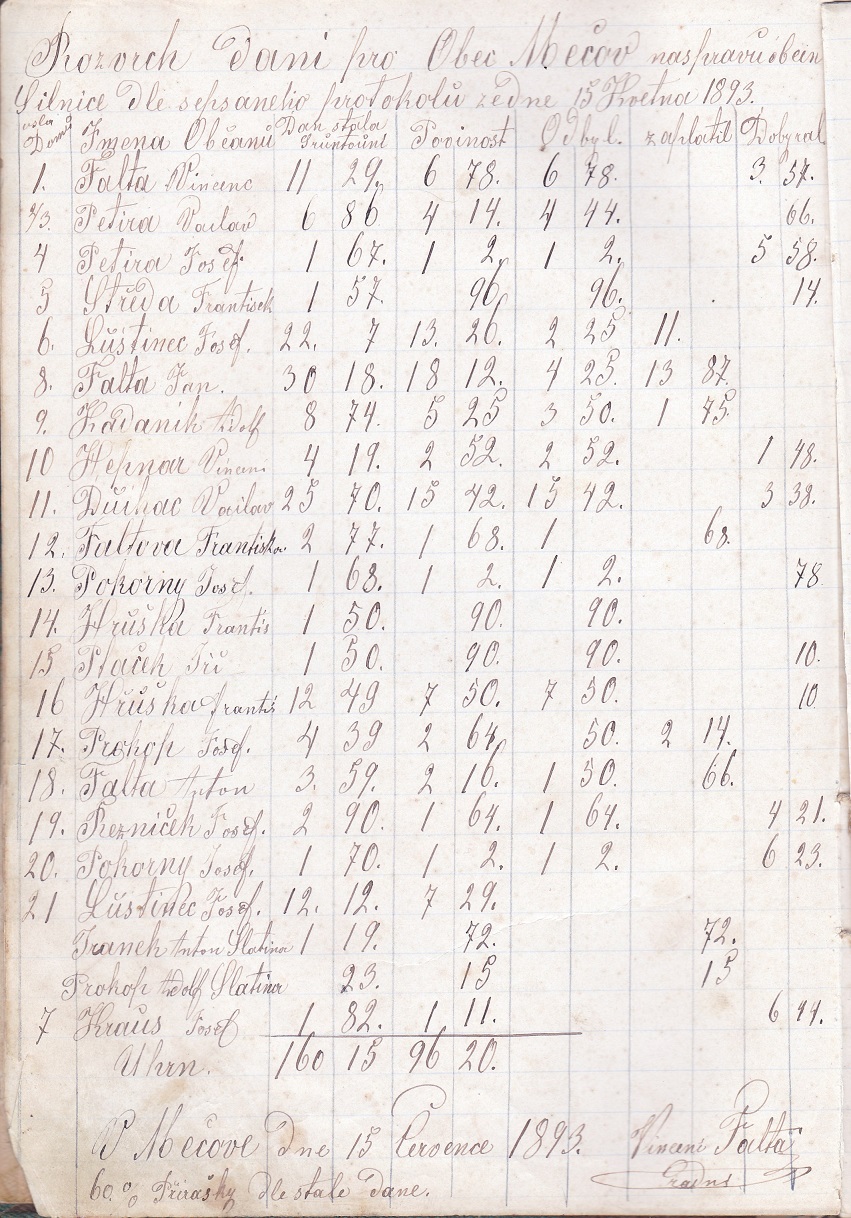 Rozvrch dani pro Obec Mečov naspravu obcin
Silnice dle sepsaneho protokolu zedne 15 Kvetna 1893.
Domu Jmena Občanu Dan stala Povinost Odbyl. zaplatil Dobyral
1. Falta Vincenc 11 29. 6 78. 6 78. 3. 57.
2/3. Petira Vaclav 6 86 4 14. 4 44. 66.
4 Petira Josef. 1 67. 1 2. 1 2. 5 58.
5 Středa Frantisek 1 57. 96. 96. 14.
6. Luštinec Josef. 22. 7 13. 26. 2 25 11.
8. Falta Jan. 30 18. 18 12. 4 25. 13 87.
9. Kadanik Adolf 8 74. 5 25 3 50. 1 75
10 Hepnar Vincenc 4 19. 2 52. 2 52. 1 48.
11. Vaclav 25 70. 15 42. 15 42. 3 38.
12. Faltova Frantiska 2 77. 1 68. 1 68.
13. Pokorny Josef. 1 68. 1 2. 1 2. 78
14. Hruška Frantis 1 50. 90. 90.
15 Ptaček Jři 1 50. 90. 90. 10.
16 Hruška frantis 12 49 7 50. 7 50. 10
17. Prokop Josef. 4 39 2 64. 50. 2 14.
18. Falta Anton 3. 59. 2 16. 1 50. 66.
19. Rezniček Josef. 2 90. 1 64. 1 64. 4 21.
20. Pokorny Josef. 1 70. 1 2. 1 2. 6 23.
21 Luštinec Josef. 12. 12. 7 29.
Franek Anton Slatina 1 19. 72. 72.
Prokop Adolf Slatina 23. 15 15
7 Kraus Josef 1 82. 1 11. 6 44.
Uhrn. 160 15 96 20.
V Mečove dne 15 Července 1893. Vincenc Falta
60 % Přirašky dle stale dane. radni